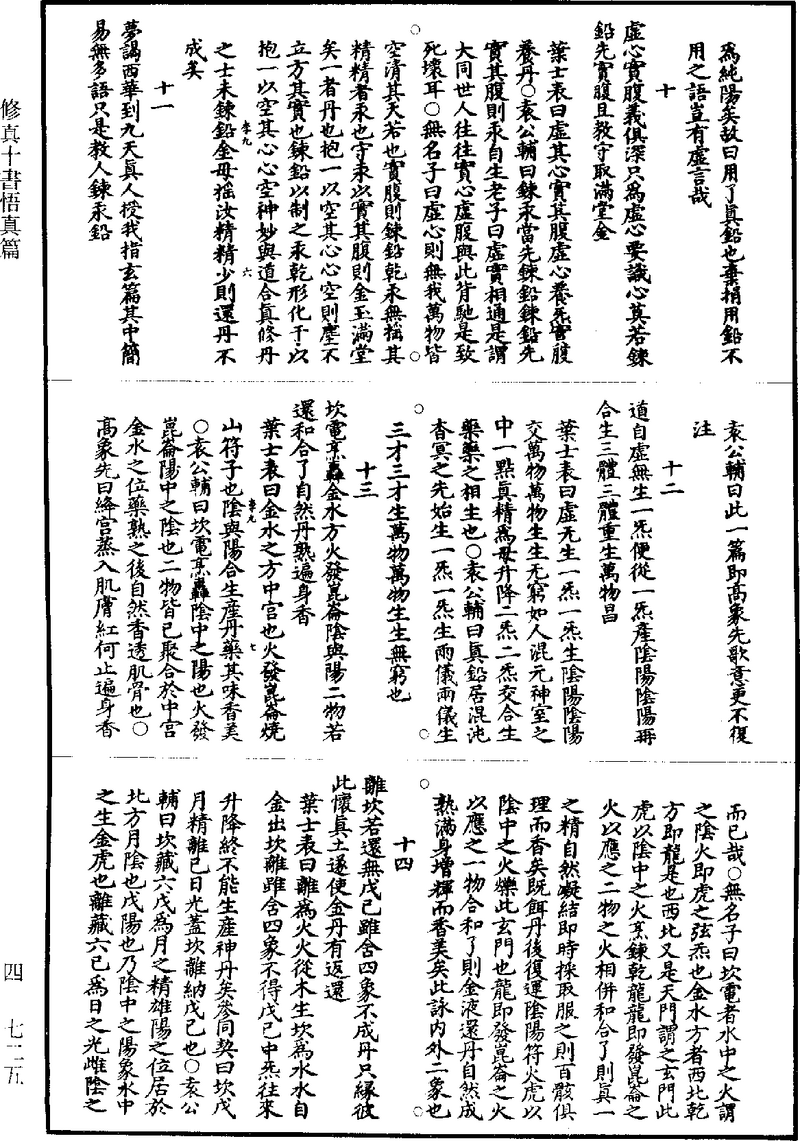 爲純陽矣故曰用了真鉛也棄捐用鉛不
用之語豈有虛言哉
十
虛心實腹義俱深只爲虛心要識心莫若鍊
鉛先實腹且教守取滿堂金
葉士表曰虛其心實其腹虛心養炁實腹
養丹○袁公輔曰鍊汞當先鍊鉛鍊鉛先
實其腹則汞自生老子曰虛實相通是謂
大同世人往往實心虛腹與此背馳是致
死壞耳○無名子曰虛心則無我萬物皆
空清其天君也實腹則鍊鉛乾汞無摇其
精精者汞也守汞以實其腹則金玉滿堂
矣一者丹也抱一以空其心心空則塵不
立方其實也鍊鉛以制之汞乾形化于以
抱一以空其心心空神妙與道合真修丹
之士未鍊鉛金毋摇汝精精少則還丹不
成矣
十一
夢謁西華到九天真人授我指玄篇其中簡
易無多語只是教人鍊汞鉛
袁公輔曰此一篇即高象先歌意更不復
注
十二
道自虛無生一炁便從一炁產陰陽陰陽再
合生三體三體重生萬物昌
葉士表曰虛无生一炁一炁生陰陽陰陽
交萬物萬物生生无窮如人混元神室之
中一點真精爲母升降二炁二炁交合生
藥藥之相生也○袁公輔曰真鉛居混沌
杳冥之先始生一炁一炁生兩儀兩儀生
三才三才生萬物萬物生生無窮也
十三
坎電烹轟金水方火發崑崙陰與陽二物若
還和合了自然丹熟遍身香
葉士表曰金水之方中宫也火發崑崙燒
山符子也陰與陽合生産丹藥其味香美
○袁公輔曰坎電烹轟陰中之陽也火發
崑崙陽中之陰也二物皆已聚合於中宫
金水之位藥熟之後自然香透肌骨也○
高象先曰絳宫蒸入肌膚紅何止遍身香
而已哉○無名子曰坎電者水中之火謂
之陰火即虎之弦炁也金水方者西北乾
方即龍是也西北又是天門謂之玄門此
虎以陰中之火烹鍊乾龍龍即發崑崙之
火以應之二物之火相併和合了則真一
之精自然凝結即時採取服之則百骸俱
理而香矣既餌丹後復運陰陽符火虎以
陰中之火爍此玄門也龍即發崑崙之火
以應之一物合和了則金液還丹自然成
熟滿身增輝而香美矣此詠内外二象也
十四
離坎若還無戊己雖含四象不成丹只緣彼
此懷真土遂使金丹有返還
葉士表曰離爲火火從木生坎爲水水自
金出坎離雖含四象不得戊己中炁往來
升降終不能生産神丹矣參同契曰坎戊
月精離已日光蓋坎離納戊己也○袁公
輔曰坎藏六戊爲月之精雄陽之位居於
北方月陰也戊陽也乃陰中之陽象水中
之生金虎也離藏六己爲日之光雌陰之
修真十書悟真篇
四
七二五